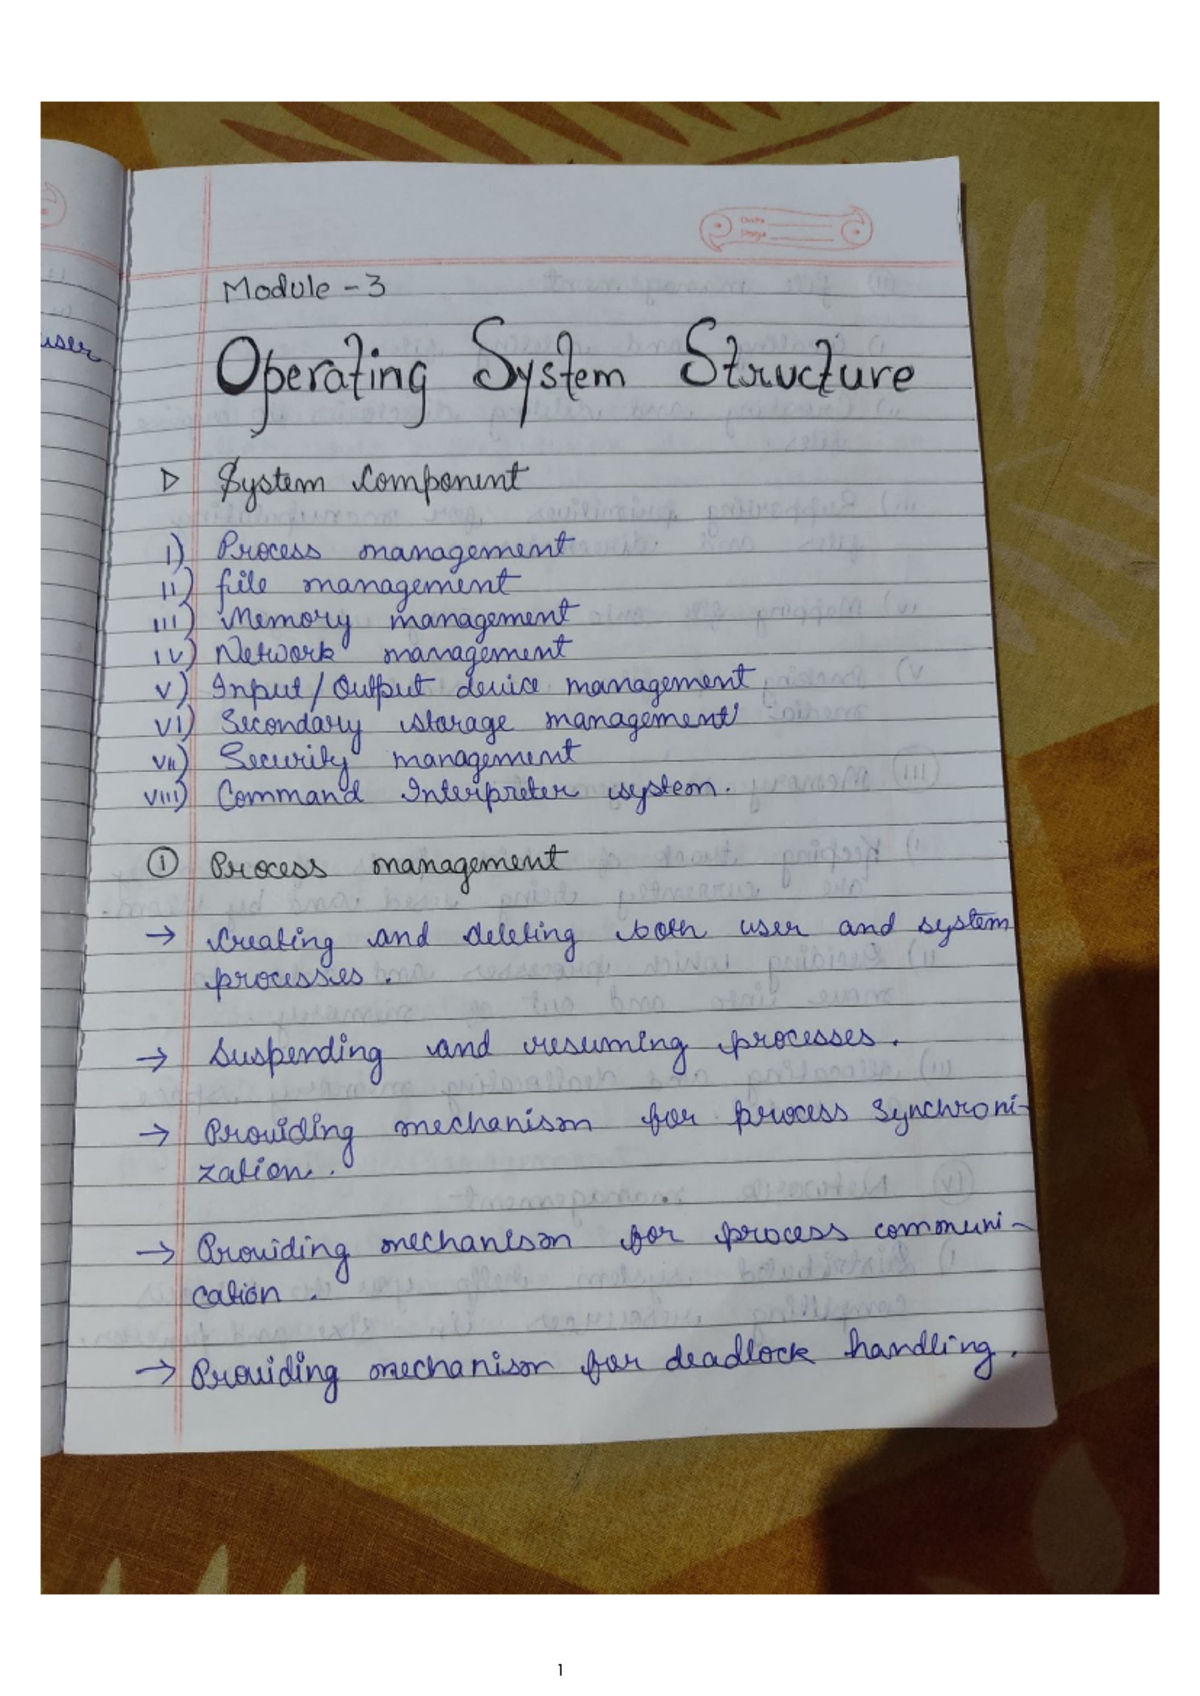 user
Module - 3
Operating System Structure
System Component
i) Process management
ii) file management
iii) Memory management
iv) Network management
v) Input/Output device management
vi) Secondary storage management
vii) Security management
viii) Command Interpreter system.
① Process management
→ Creating and deleting both user and system
processes.
→ Suspending and resuming processes.
→ Providing mechanism for process Synchroni-
zation.
→ Providing mechanism for process communi-
cation.
→ Providing mechanism for deadlock handling.
1